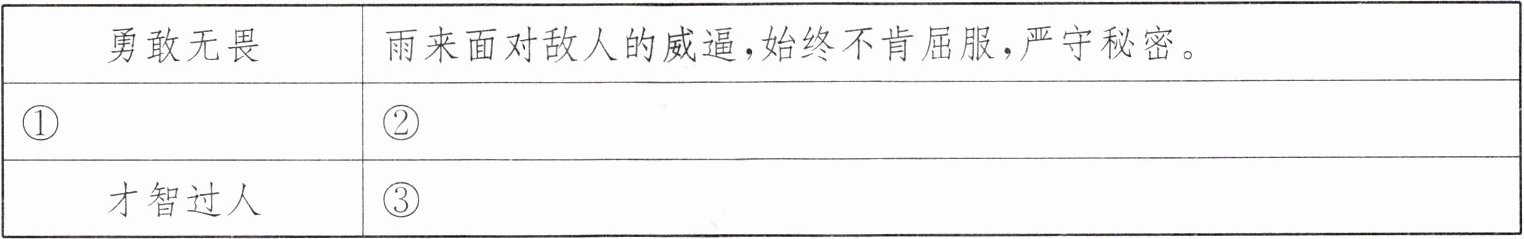 勇敢无畏 雨来面对敌人的威逼,始终不肯屈服,严守秘密。
① ②
才智过人 ③